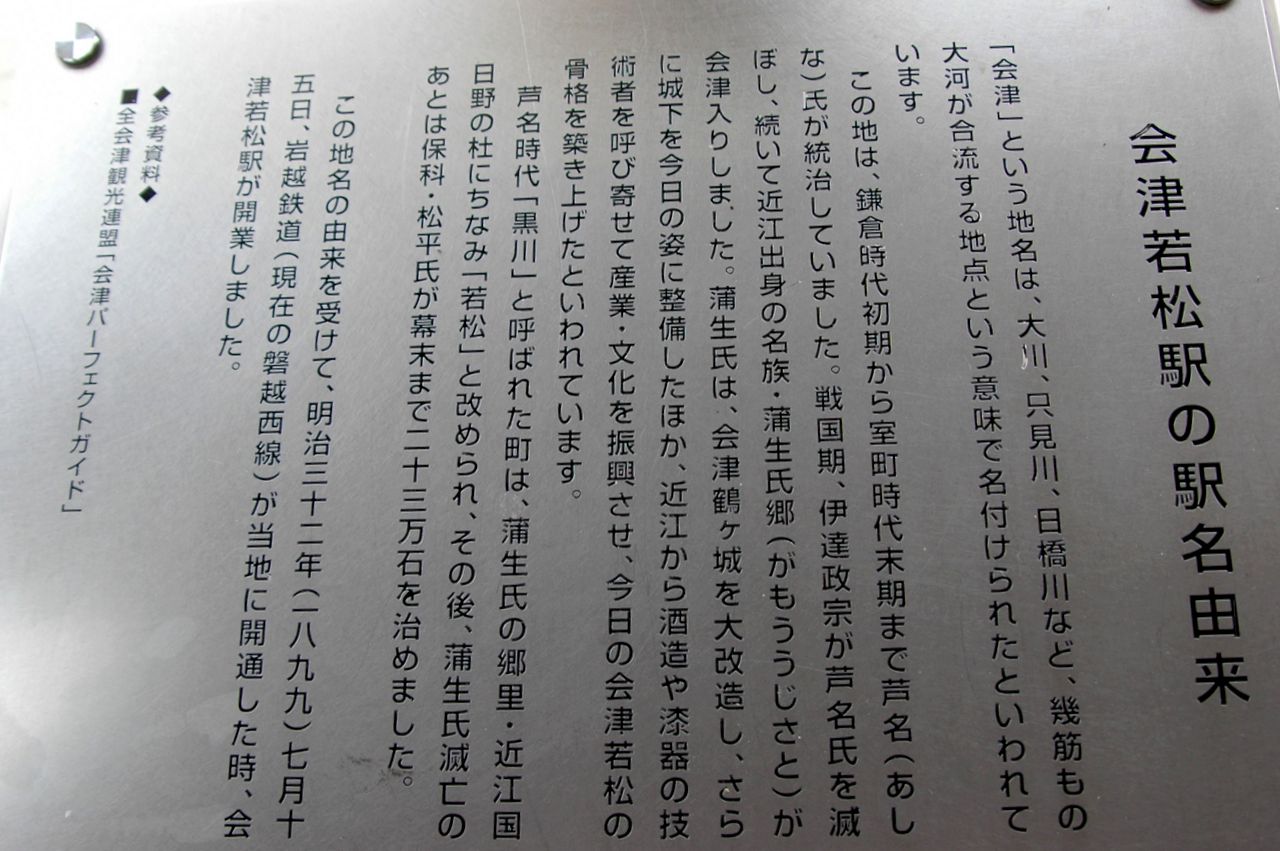 会津若松駅の駅名由来
「会津」という地名は、大川、只見川、日橋川など、幾筋もの
大河が合流する地点という意味で名付けられたといわれて
います。
この地は、鎌倉時代初期から室町時代末期まで芦名（あし
な）氏が統治していました。戦国期、伊達政宗が芦名氏を滅
ぼし、続いて近江出身の名族・蒲生氏郷（がもううじさと）が
会津入りしました。蒲生氏は、会津鶴ヶ城を大改造し、さら
に城下を今日の姿に整備したほか、近江から酒造や漆器の技
術者を呼び寄せて産業・文化を振興させ、今日の会津若松の
骨格を築き上げたといわれています。
芦名時代「黒川」と呼ばれた町は、蒲生氏の郷里・近江国
日野の杜にちなみ「若松」と改められ、その後、蒲生氏滅亡の
あとは保科・松平氏が幕末まで二十三万石を治めました。
この地名の由来を受けて、明治三十二年（一八九九）七月十
五日、岩越鉄道（現在の磐越西線）が当地に開通した時、会
津若松駅が開業しました。
◆参考資料◆
■全会津観光連盟「会津パーフェクトガイド」